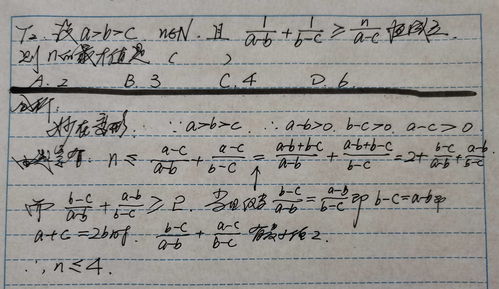 T2. 设 a>b>c. n∈N. 且 1/(a-b) + 1/(b-c) ≥ n/(a-c) 恒成立.
则 n的最大值是 ( )
A. 2 B. 3 C. 4 D. 6.
分析:
变形. ∵ a>b>c. ∴ a-b>0. b-c>0. a-c>0.
n ≤ (a-c)/(a-b) + (a-c)/(b-c) = (a-b+b-c)/(a-b) + (a-b+b-c)/(b-c) = 2 + (b-c)/(a-b) + (a-b)/(b-c)
而 (b-c)/(a-b) + (a-b)/(b-c) ≥ 2. 当且仅当 (b-c)/(a-b) = (a-b)/(b-c) 即 b-c=a-b 即
a+c=2b时. (b-c)/(a-b) + (a-c)/(b-c) 有最小值 2.
∴ n≤4.